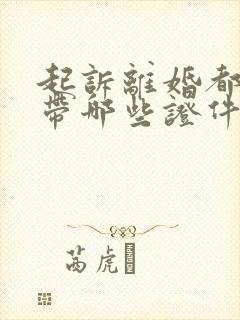 起訴離婚都
帶哪些證件
茜虎